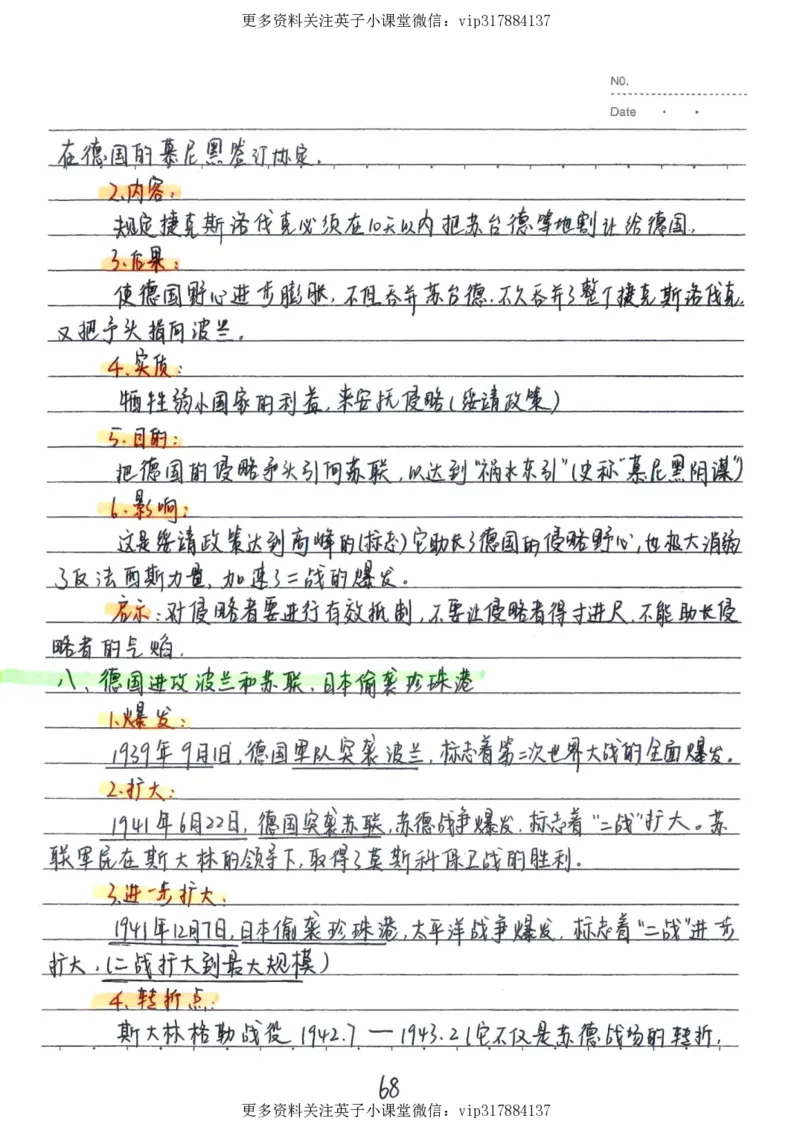 更多资料关注英子小课堂微信：vip317884137
N0.
Date
在德国的慕尼黑签订协定.
2.内容：
规定捷克斯洛伐克必须在10天以内把苏台德等地割让给德国.
3.后果：
使德国野心进步膨胀，不但吞并苏台德.不久吞并了整个捷克斯洛伐克.
又把予头指向波兰。
4.实质：
牺牲弱小国家的利益，来安抚侵略(绥靖政策)
5.目的：
把德国的侵略矛头引向苏联，以达到“祸水东引”(史称“慕尼黑阴谋”)
6.影响：
这是绥靖政策达到高峰的(标志)它助长了德国的侵略野心,也极大消弱
了反法西斯力量，加速了二战的爆发。
启示：对侵略者要进行有效抵制，不要让侵略者得寸进尺.不能助长侵
略者的气焰.
八、德国进攻波兰和苏联、日本偷袭珍珠港
1.爆发：
1939年9月1日,德国军队突袭波兰，标志着第二次世界大战的全面爆发。
2.扩大：
1941年6月22日，德国突袭苏联,苏德战争爆发，标志着“二战”扩大。苏
联军民在斯大林的领导下,取得了莫斯科保卫战的胜利。
3.进一步扩大.
1941年12月7日,日本偷袭珍珠港,太平洋战争爆发，标志着“二战”进步
扩大.(二战扩大到最大规模)
4.转折点：
斯大林格勒战役1942.7—1943.2(它不仅是苏德战场的转折,
68
更多资料关注英子小课堂微信：vip317884137